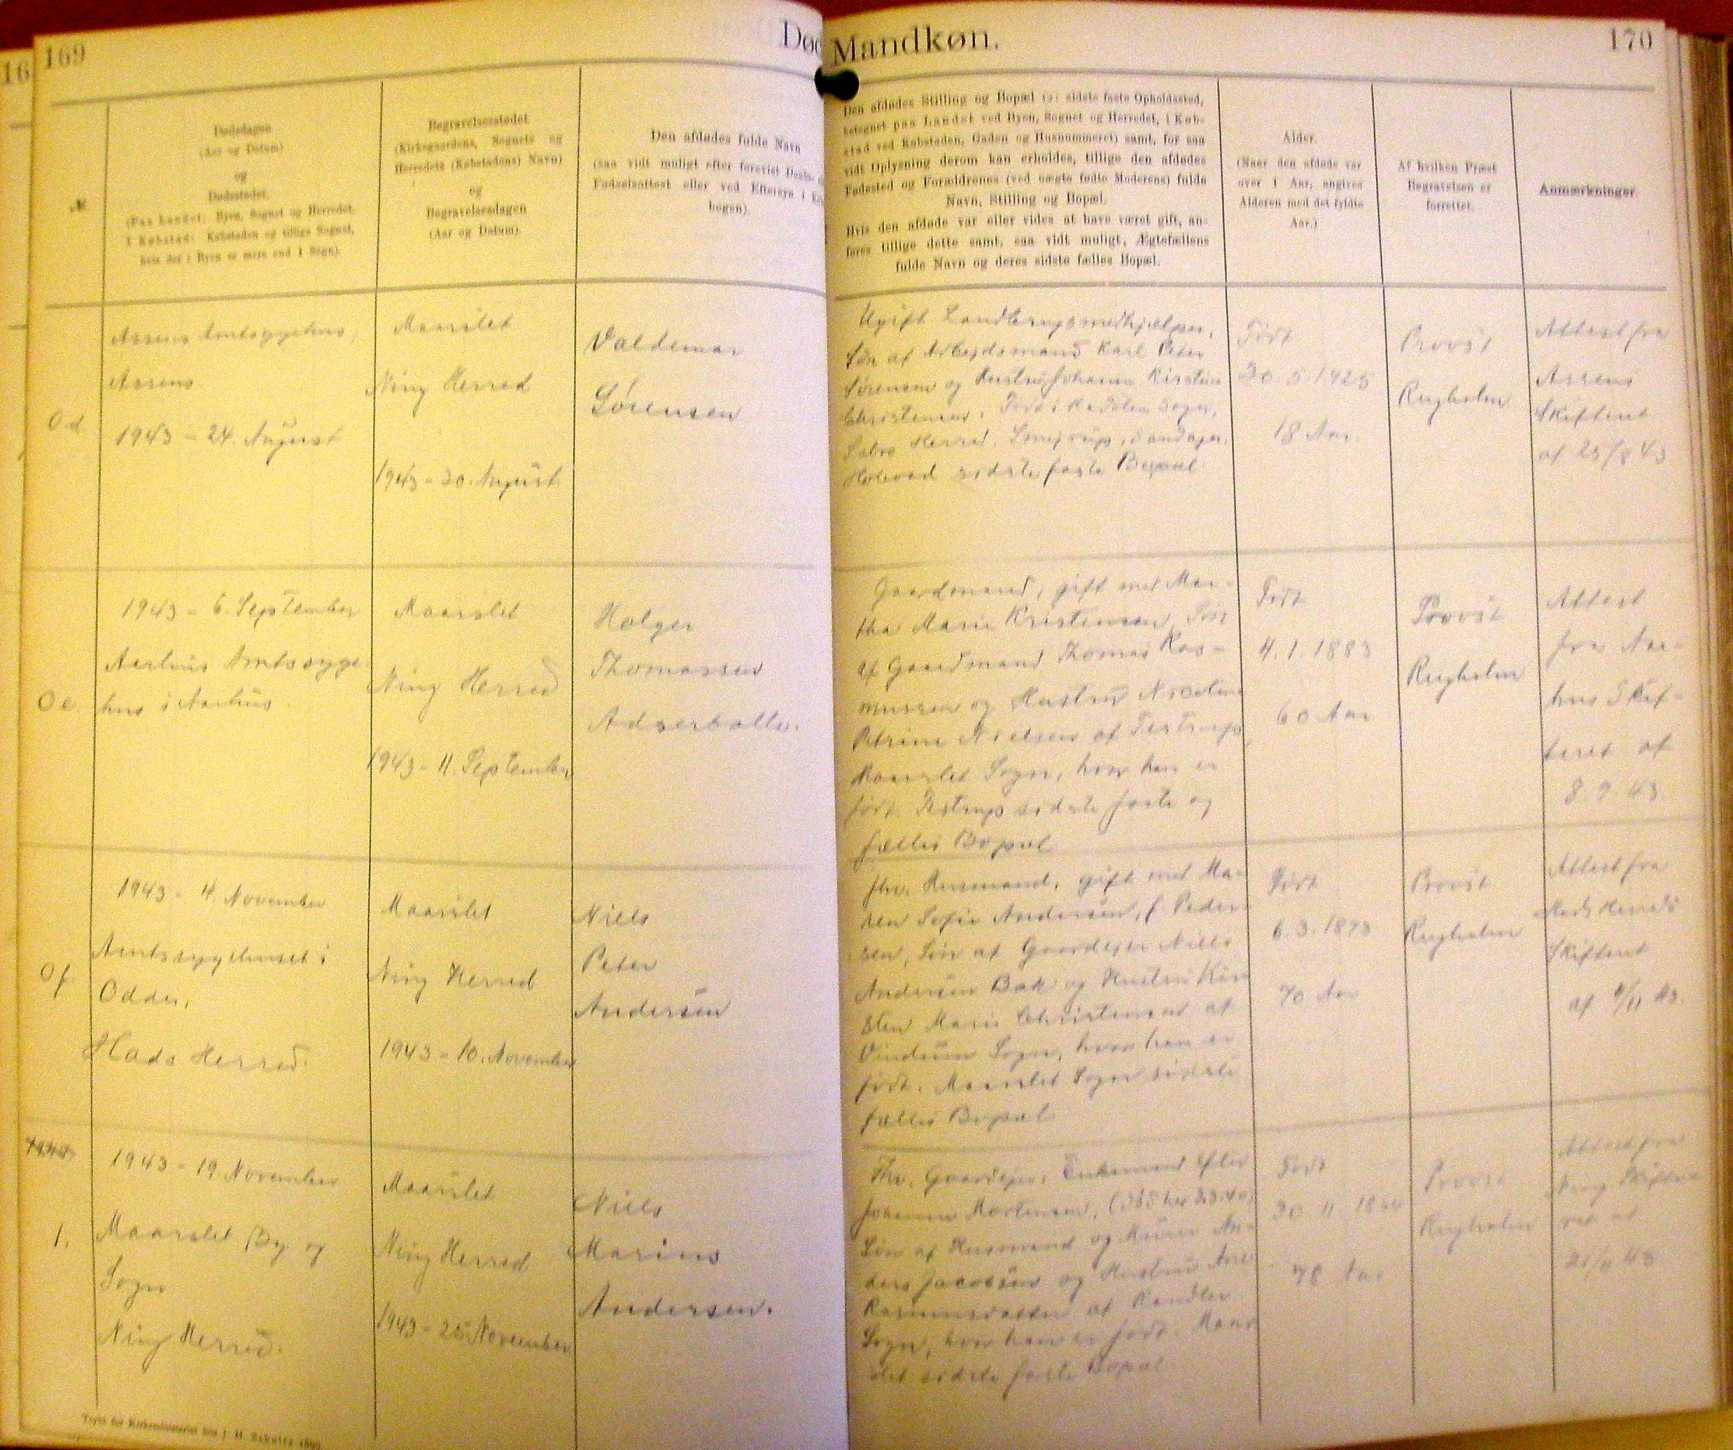 16
169
Død
Mandkøn.
170
№
Dødsdagen
(Aar og Datum)
og
Dødsstedet.
(Paa Landet: Byen, Sognet og Herredet.
I Købstad: Købstaden og tillige Sognet,
hvis der i Byen er mere end 1 Sogn).
Begravelsesstedet
(Kirkegaardens, Sognets og
Herredets (Købstadens) Navn)
og
Begravelsesdagen
(Aar og Datum).
Den afdødes fulde Navn
(saa vidt muligt efter forevist Daabs-
Fødselsattest eller ved Eftersyn i
bogen).
Den afdødes Stilling og Bopæl (ɔ: sidste faste Opholdssted,
betegnet paa Landet ved Byen, Sognet og Herredet, i Køb-
stad ved Købstaden, Gaden og Husnummeret) samt, for saa
vidt Oplysning derom kan erholdes, tillige den afdødes
Fødested og Forældrenes (ved uægte fødte Moderens) fulde
Navn, Stilling og Bopæl.
Hvis den afdøde var eller vides at have været gift, an-
føres tillige dette samt, saa vidt muligt, Ægtefællens
fulde Navn og deres sidste fælles Bopæl.
Alder.
(Naar den afdøde var
over 1 Aar, angives
Alderen med det fyldte
Aar.)
Af hvilken Præst
Begravelsen er
forrettet.
Anmærkninger.
0 d
Assens Amtssygehus,
Assens
1943 - 24. August
Maarslet
Ning Herred
1943 - 30. August
Valdemar
Sørensen
Ugift Landbrugsmedhjælper,
Søn af Arbejdsmand Karl Peter
Sørensen og Hustru Johanne Kirstine
Christensen. Født i Sogn,
Sabro Herred.
sidste faste Bopæl
Født
20. 5. 1925
18 Aar.
Provst
Rugholm
Attest fra
Assens
Skifteret
af 25/8 43
0 e.
1943 - 6. September
Aarhus Amtssyge-
hus i Aarhus.
Maarslet
Ning Herred
1943 - 11. September
Holger
Thomassen
Adserballe.
Gaardmand, gift med Mar-
tha Marie Kristensen, Søn
af Gaardmand Thomas Ras-
mussen og Hustru Nicoline
Petrine Nielsen af Testrup,
Maarslet Sogn, hvor han er
født. Testrup sidste faste og
fælles Bopæl
Født
4. 1. 1883
60 Aar
Provst
Rugholm
Attest
fra Aar-
hus Skif-
teret af
8. 9. 43
0 f
1943 - 4. November
Amtssygehuset i
Odder,
Hads Herred.
Maarslet
Ning Herred
1943 - 10. November
Niels
Peter
Andersen
fhv. Husmand, gift med Ma-
ren Sofie Andersen, f. Peder-
sen, Søn af Gaardejer Niels
Andersen Bak og Hustru Kir-
sten Marie Christensen af
Vindum Sogn, hvor han er
født. Maarslet Sogn sidste
fælles Bopæl
Født
6. 3. 1873
70 Aar
Provst
Rugholm
Attest fra
Hads Herreds
Skifteret
af 9/11 43.
1.
1943 - 19. November
Maarslet By og
Sogn
Ning Herred.
Maarslet
Ning Herred
1943 - 25. November
Niels
Marius
Andersen.
Fhv. Gaardejer. Enkemand efter
Johanne Mortensen,
Søn af Husmand og Murer An-
ders Jacobsen og Hustru Ane
Rasmusdatter af Randlev
Sogn, hvor han er født. Maar
slet sidste faste Bopæl
Født
30. 11. 1864
78 Aar
Provst
Rugholm
Attest fra
Ning Skifte-
ret af
21/11 43
Trykt for Kirkeministeriet hos J. H. Schultz